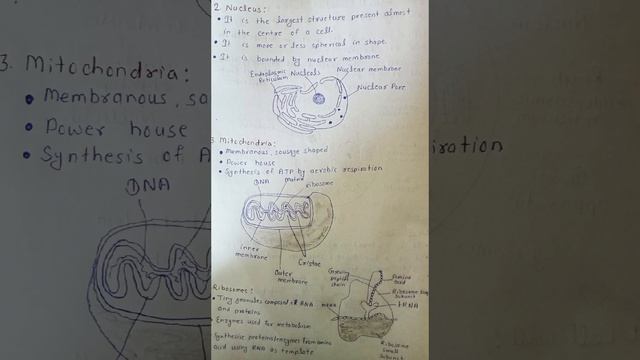 2. Nucleus:
• It is the largest structure present almost
in the centre of a cell.
• It is more or less spherical in shape.
• It is bounded by nuclear membrane
Endoplasmic
Reticulum
Nucleols
Nuclear membrane
Nuclear Pore
3. Mitochondria:
• Membranous, sausage shaped
• Power house
• Synthesis of ATP by aerobic respiration
DNA
Matrix
Ribosome
inner
membrane
Outer
membrane
Cristae
Ribosomes:
• Tiny granules composed of RNA
and proteins
Enzymes used for metabolism
Synthesise proteins/enzymes from amino
acid using RNA as template
Growing
peptide
chain
Amino
acid
Ribosome
subunit
tRNA
mRNA
Ribosome
small
subunit
3. Mitochondria:
• Membranous, sa
• Power house
• Synthesis of A
DNA
iration